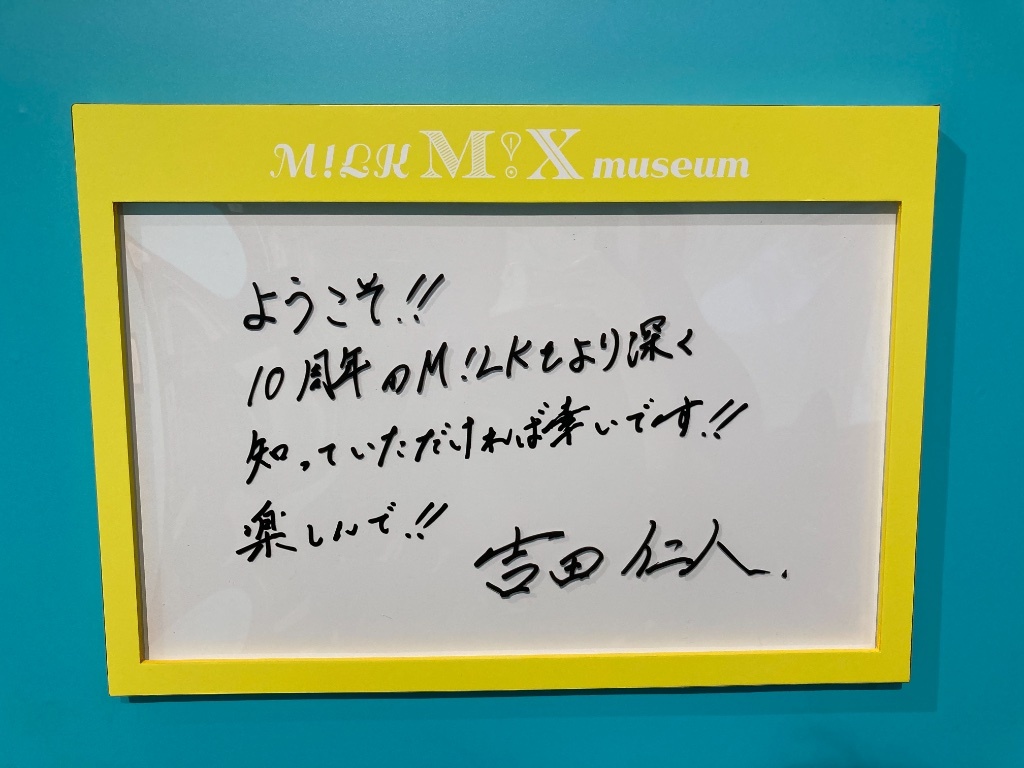 M!LK M!X museum
ようこそ!!
10周年のM!LKをより深く
知っていただければ幸いです!!
楽しんで!!
吉田 仁人.